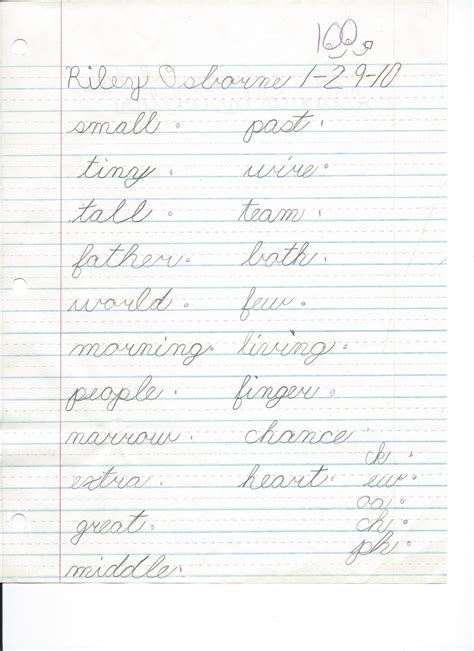 100
Riley Osborne 1-29-10
small past
tiny wire
tall team
father both
world few
morning living
people finger
narrow chance
ck
extra heart ew
great
ch
ph
middle